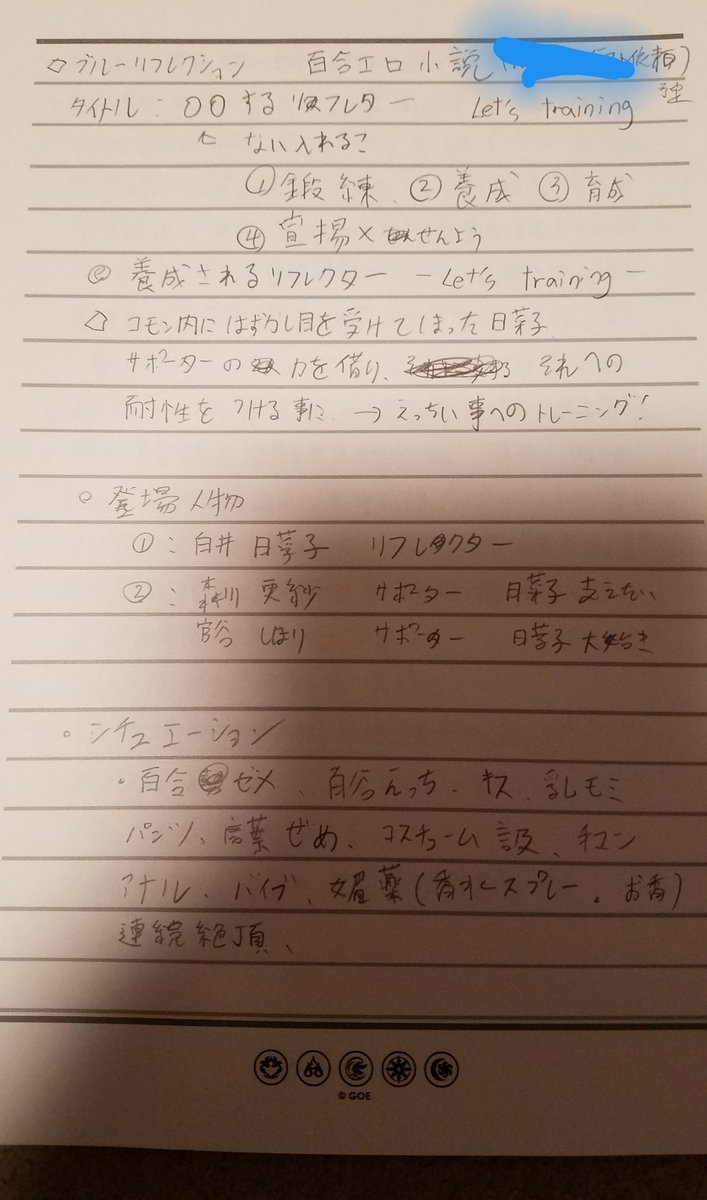 ◇ブルーリフレクション 百合エロ小説 依頼)
タイトル:〇〇するリフレクター Let's training 予定
ない入れるこ
①鍛練 ②養成 ③育成
④宣揚× せんよう
◎養成されるリフレクター －Let's training－
コモン内にはずかし目を受けてしまった日菜子
サポーターの力を借り、それへの
耐性をつける事に →えっちい事へのトレーニング!
○登場人物
①:白井 日菜子 リフレクター
②:森川 更紗 サポーター 日菜子支えたい
宮谷 しほり サポーター 日菜子大好き
・シチュエーション
・百合ゼメ、百合えっち、キス、乳モミ
パンツ、言葉ぜめ、コスチューム
アナル、バイブ、媚薬(香水スプレー。お香)
連続絶頂、
© GOE